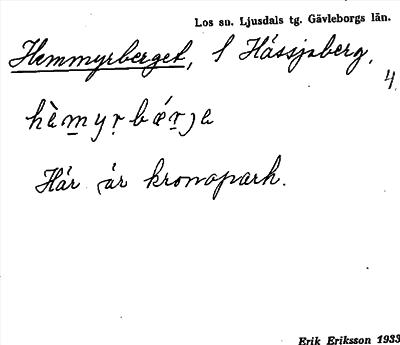 Los sn. Ljusdals tg. Gävleborgs län.
Hemmyrberget, 1 Hässjaberg,
4.
hè̀myṛbǽṛje
Här är kronopark.
Erik Eriksson 1933